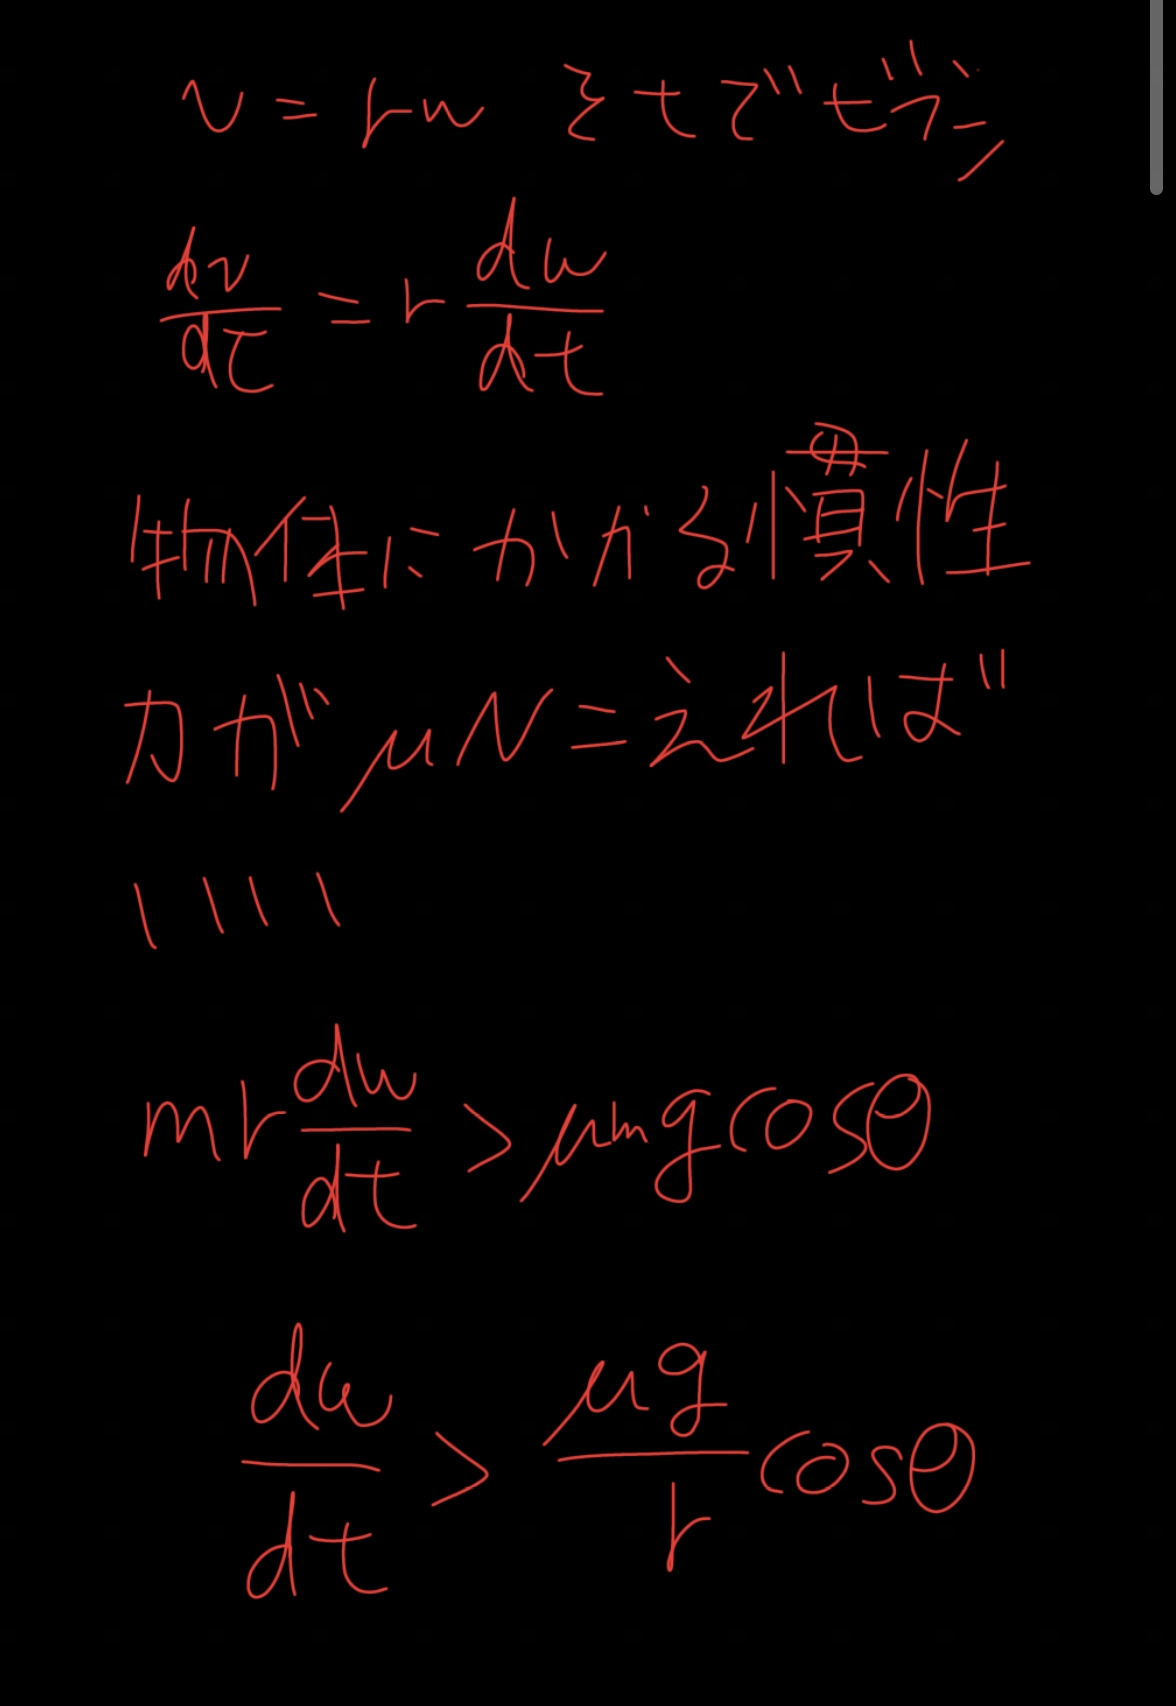 v = rω をtでビブン
dv/dt = r dω/dt
物体にかかる慣性
力が μN こえれば
いい
mr dω/dt > μmg cosθ
dω/dt > μg/r cosθ